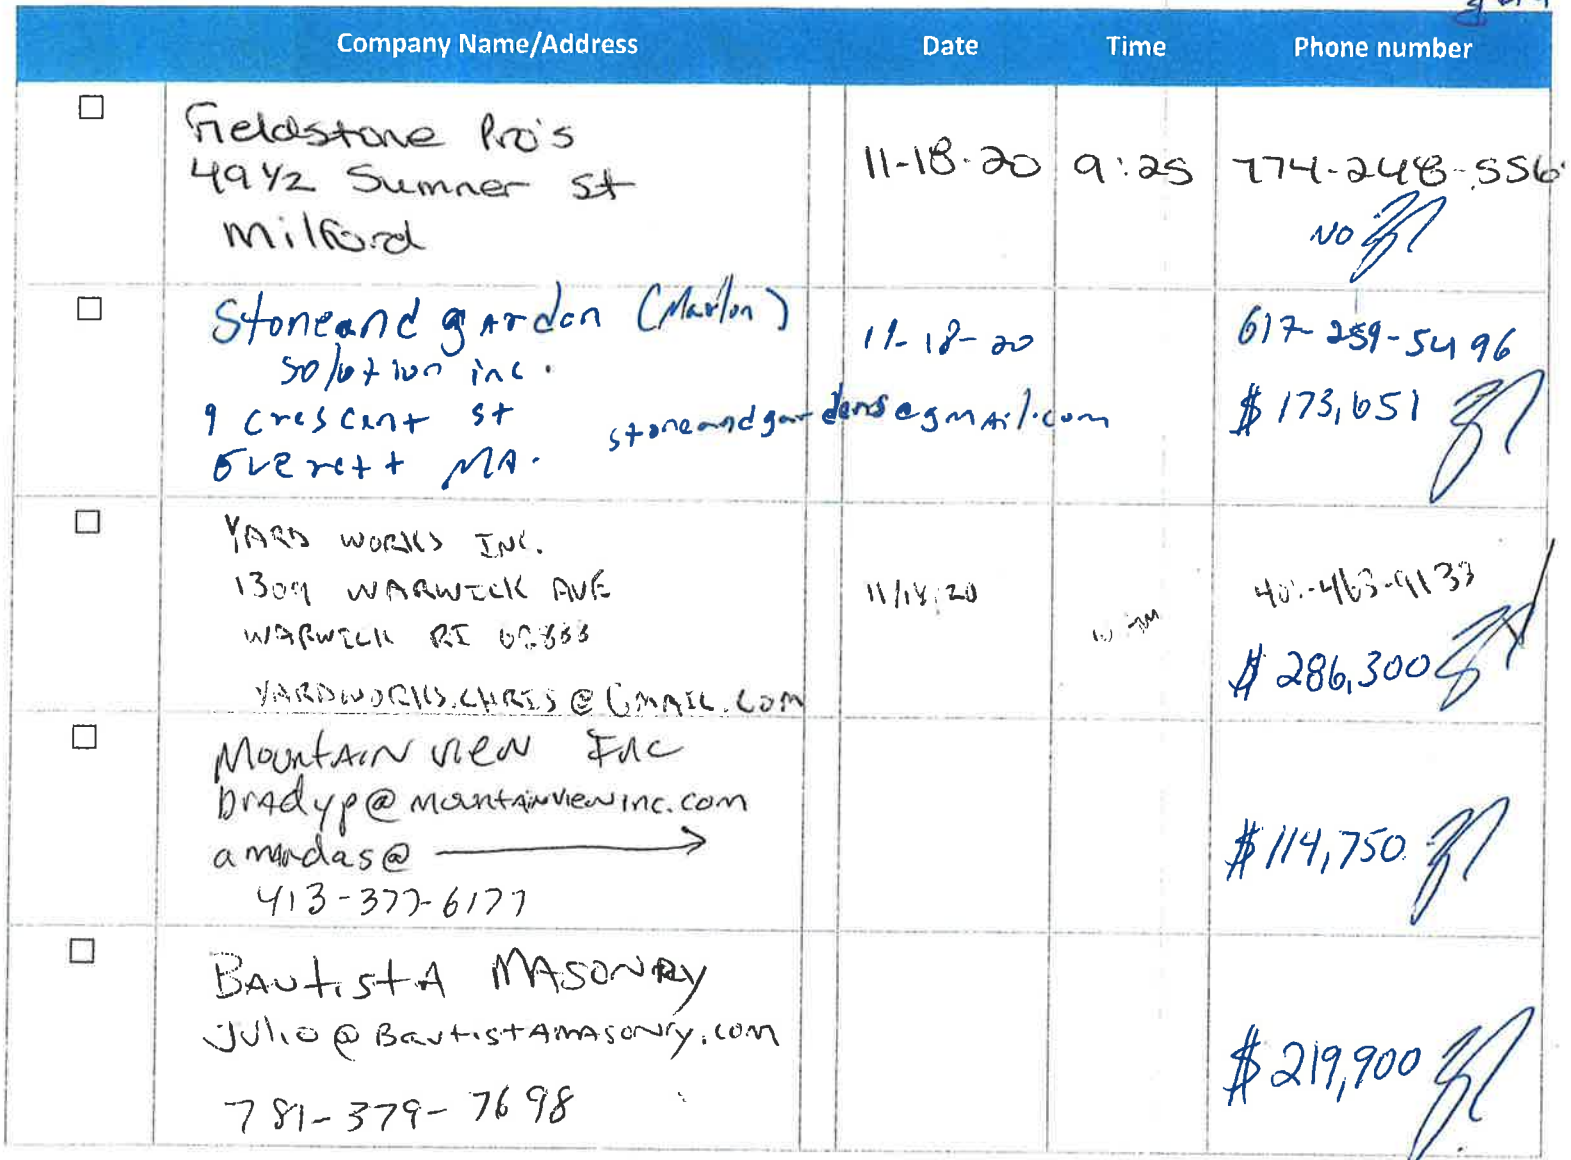 Company Name/Address Date Time Phone number
Fieldstone Pro's
49 1/2 Sumner St
Milford
11-18-20 9:25 774-248-556
NO
Stoneand garden (Marlon)
Solution inc.
9 Crescent St
Everett MA.
stoneandgardens@gmail.com
11-18-20
617-259-5496
$173,651
YARD WORKS INC.
1309 WARWICK AVE
WARWICK RI
YARDWORKS.CHRIS@GMAIL.COM
11/18/20
$286,300
Mountain View Inc
bradyp@mountainviewinc.com
amandas@
413-377-6177
$114,750
Bautista Masonry
Julio@Bautistamasonry.com
781-379-7698
$219,900